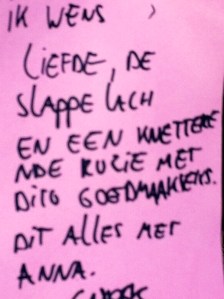 IK WENS
LIEFDE, DE
SLAPPE LACH
EN EEN KNETTERE
NDE RUZIE MET
DITO GOEDMAKERS.
DIT ALLES MET
ANNA.